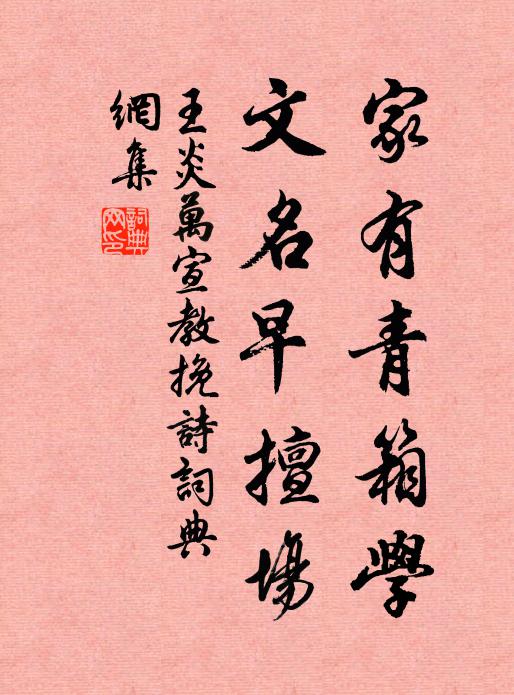 家有青箱學
文名早擅場
王炎萬宣教挽詩詞典
網集
詞典網印